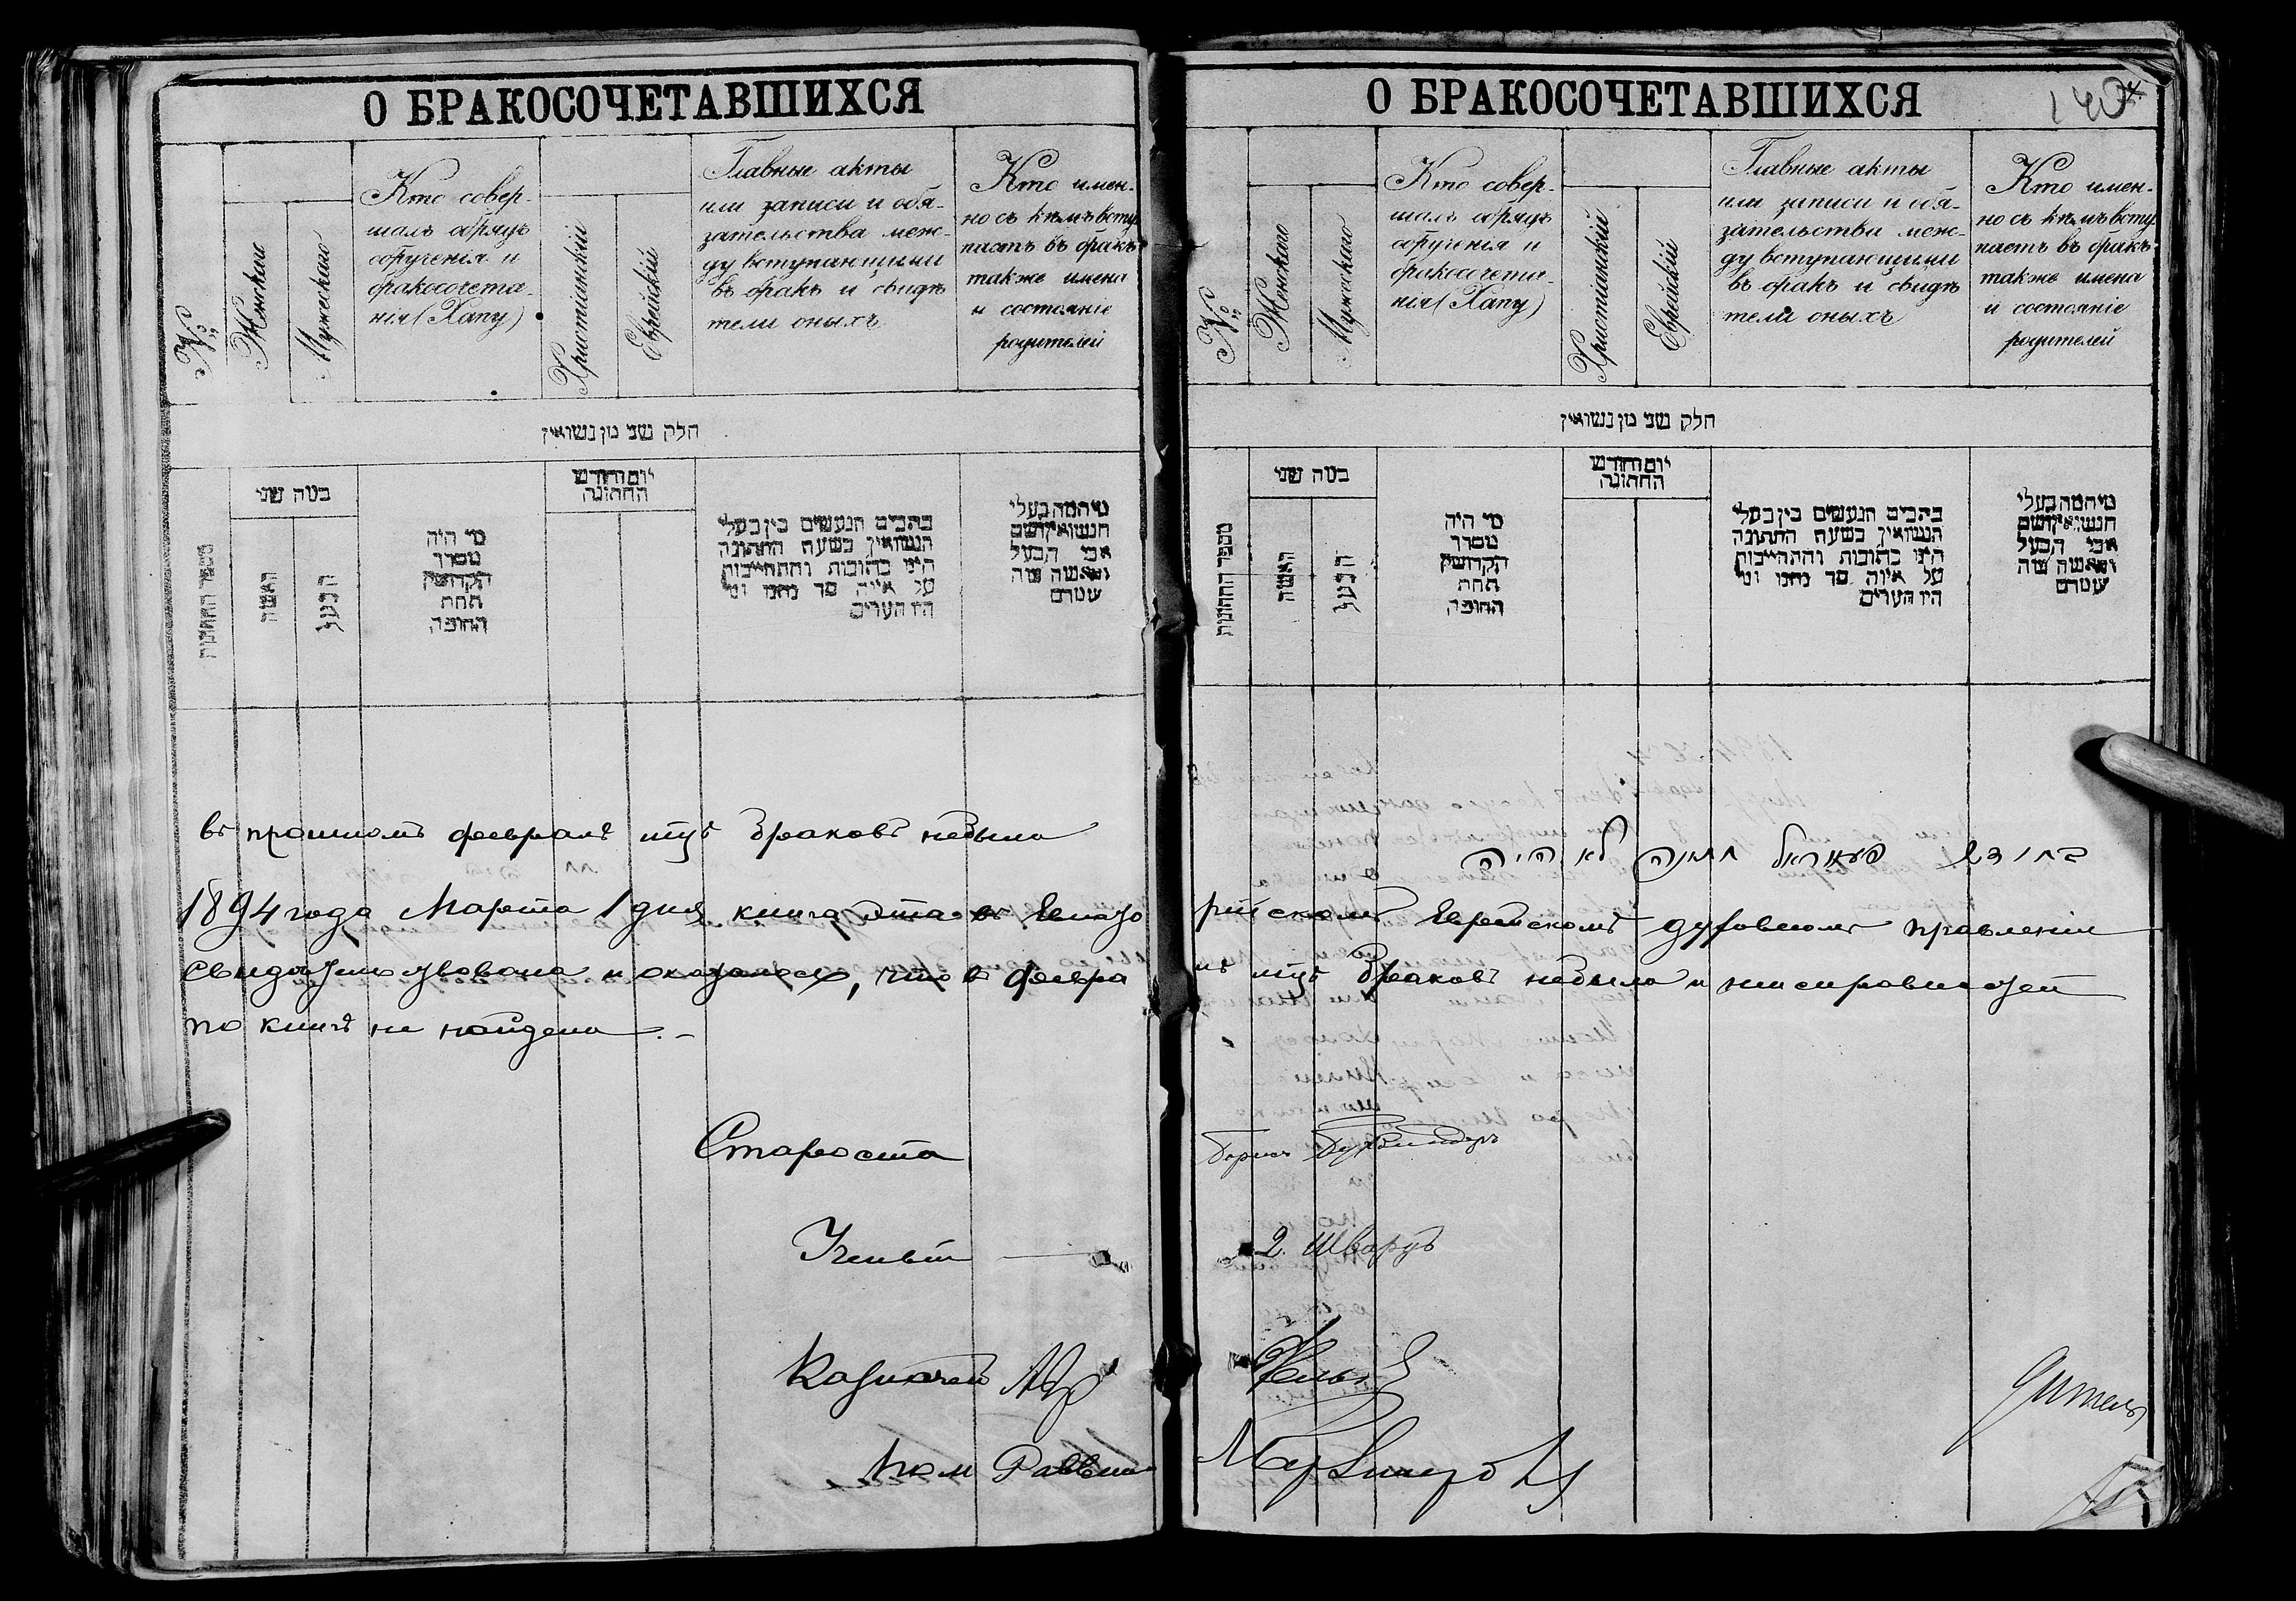 О БРАКОСОЧЕТАВШИХСЯ
№
Женскаго
Мужескаго
Кто совер-
шалъ обрядъ
обрученія и
бракосочета-
нія (Хапу)
Христіанскій
Еврейскій
Главные акты
или записи и обя-
зательства меж-
ду вступающими
въ бракъ и свидѣ
тели оныхъ
Кто имен-
но съ кѣмъ всту
паетъ въ бракъ
также имена
и состояніе
родителей
חלק שני מן נשואין
מספר החתונות
כמה שני
האשה
הבעל
מי היה
מסדר
הקדושין
תחת
החופה
יום וחודש
החתונה
כתבים הנעשים בין בעלי
הנשואין בשעת החתונה
היינו כתובות והתחייבות
על איזה סך נתנו ומי
היו העדים
מי המה בעלי
הנשואין ושם
אבי הבעל
והאשה ומה
עוסקים
въ прошломъ февралѣ мцѣ браковъ небыло
1894 года Марта 1 дня книга эта въ Евпато
свидѣтельствована и оказалось, что въ февра
по книгѣ не найдено. -
Староста
Ученый
Казначей
Пом Раввина
О БРАКОСОЧЕТАВШИХСЯ
140
№
Женскаго
Мужескаго
Кто совер-
шалъ обрядъ
обрученія и
бракосочета-
нія (Хапу)
Христіанскій
Еврейскій
Главные акты
или записи и обя-
зательства меж-
ду вступающими
въ бракъ и свидѣ
тели оныхъ
Кто имен-
но съ кѣмъ всту
паетъ въ бракъ
также имена
и состояніе
родителей
חלק שני מן נשואין
מספר החתונות
כמה שני
האשה
הבעל
מי היה
מסדר
הקדושין
תחת
החופה
יום וחודש
החתונה
כתבים הנעשים בין בעלי
הנשואין בשעת החתונה
היינו כתובות והתחייבות
על איזה סך נתנו ומי
היו העדים
מי המה בעלי
הנשואין ושם
אבי הבעל
והאשה ומה
עוסקים
בחודש פעווראל חתונה לא היה
рійскомъ Еврейскомъ духовномъ правленіи
лѣ мцѣ браковъ небыло и неисправностей
Борисъ
Шварцъ